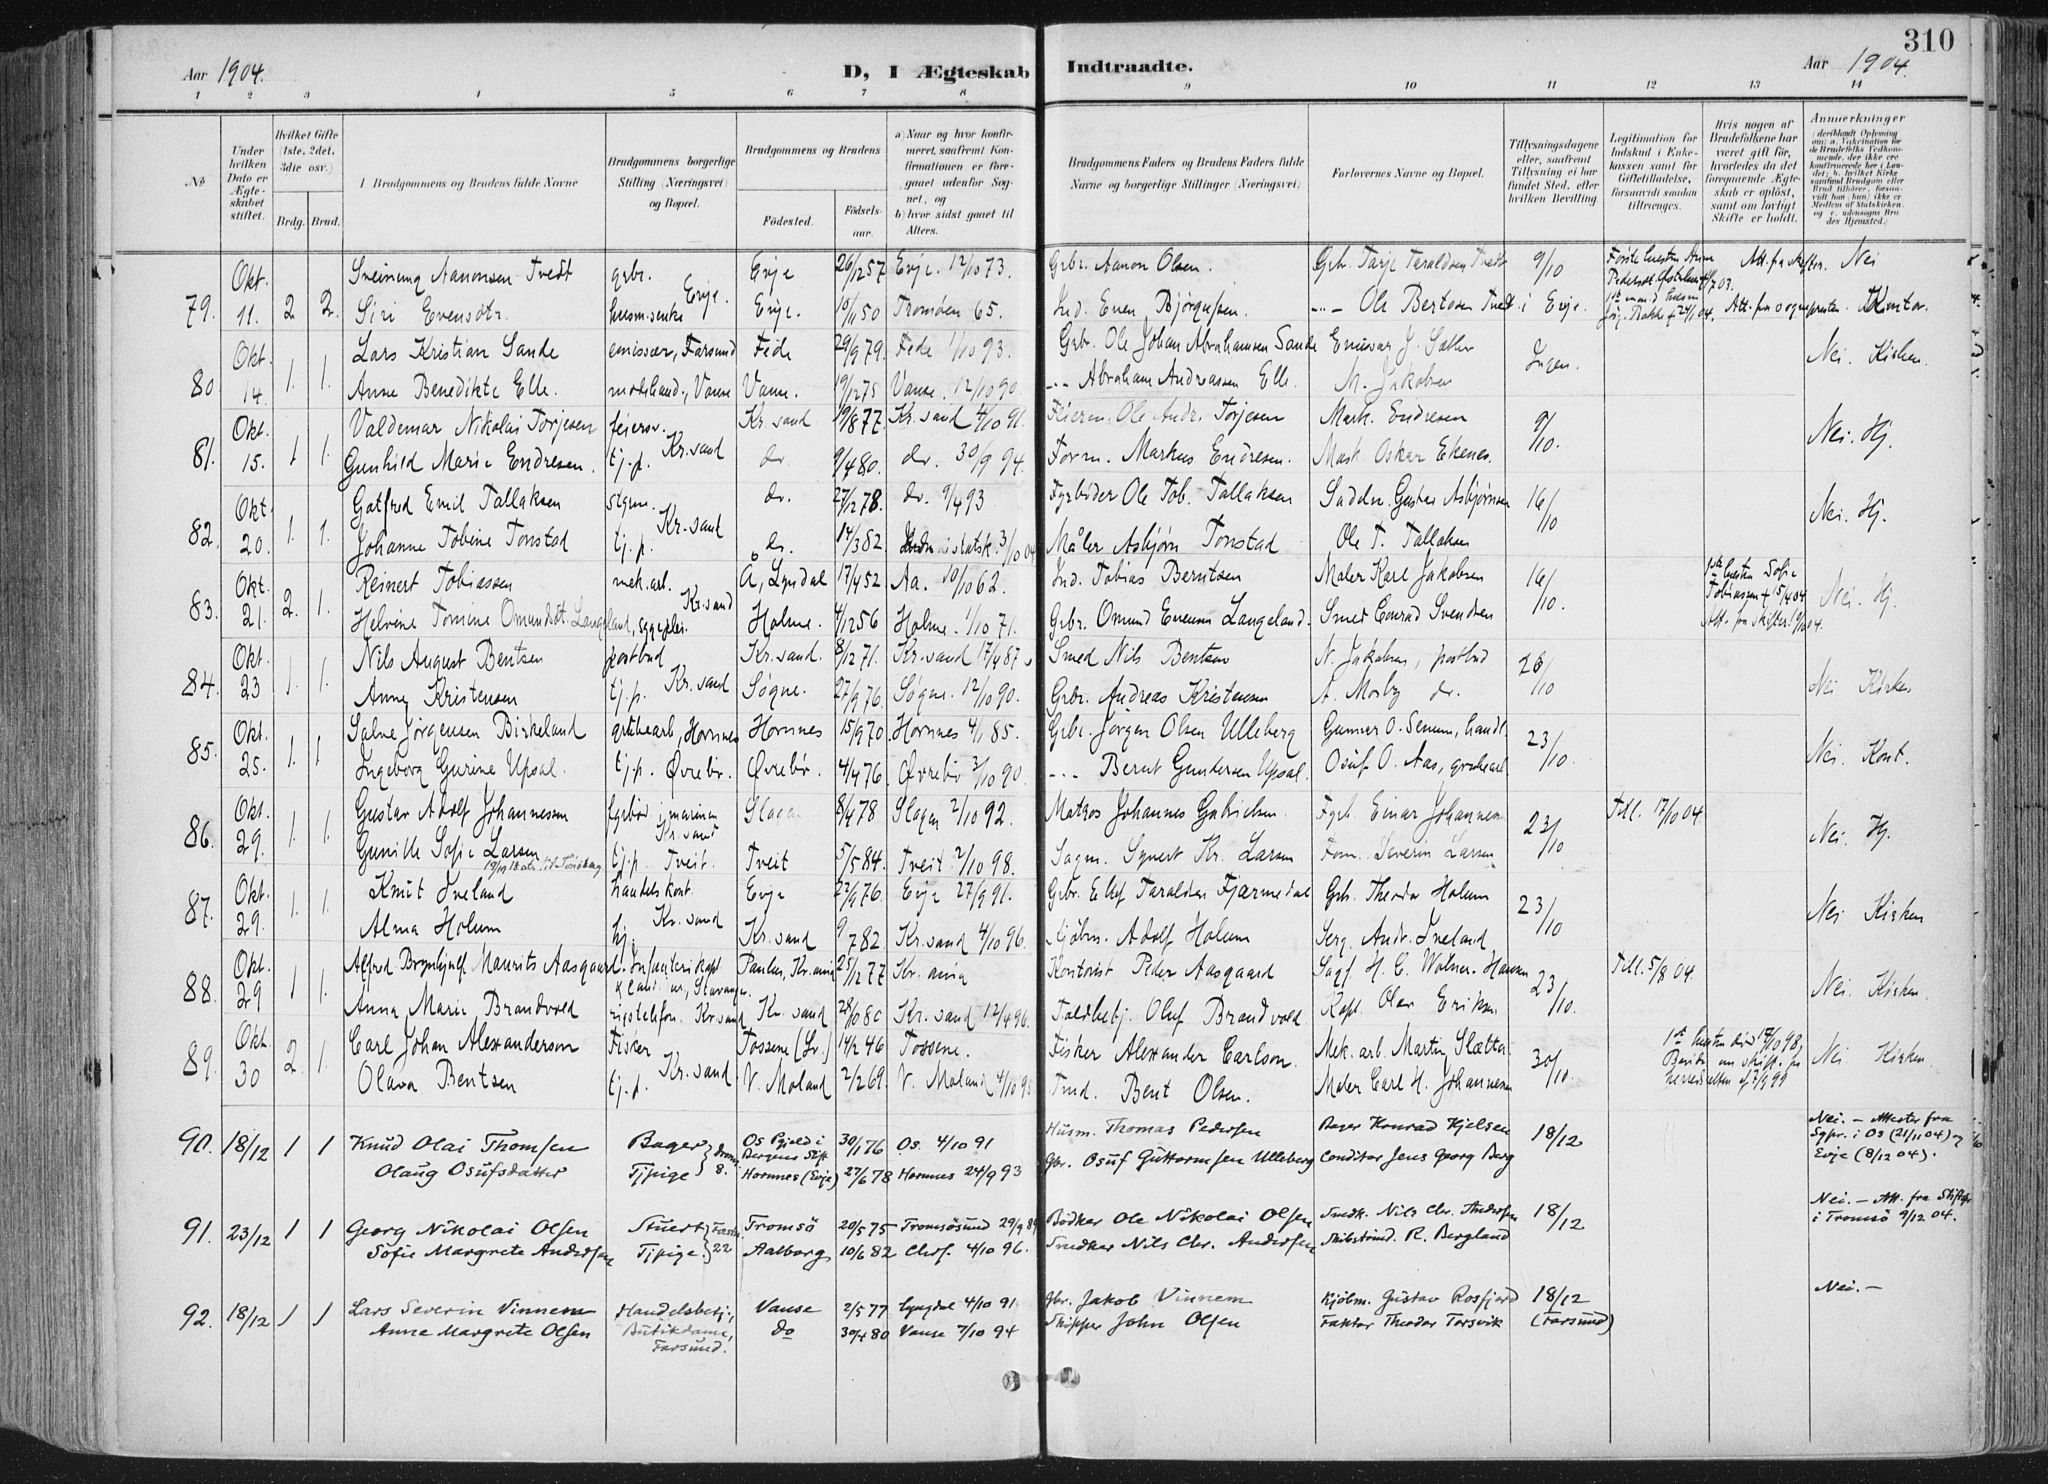 310
Aar 1904.
D, I Ægteskab Indtraadte.
Aar 1904.
1 2 3 4 5 6 7 8 9 10 11 12 13 14
No
Under hvilken Dato er Ægteskabet stiftet.
Hvilket Gifte (1ste, 2det, 3die osv.)
Brdg. Brud.
Brudgommens og Brudens fulde Navne
Brudgommens borgerlige Stilling (Næringsvei) og Bopæl.
Brudgommens og Brudens
Fødested. Fødselsaar.
a) Naar og hvor konfirmeret, saafremt Konfirmationen er foregaaet udenfor Sognet, og
b) hvor sidst gaaet til Alters.
Brudgommens Faders og Brudens Faders fulde Navne og borgerlige Stillinger (Næringsvei)
Forlovernes Navne og Bopæl.
Tillysningsdagene eller, saafremt Tillysning ei har fundet Sted, efter hvilken Bevilling.
Legitimation for Indskud i Enkekassen samt for Giftetilladelse, forsaavidt saadan tiltrænges.
Hvis nogen af Brudefolkene har været gift før, hvorledes da det foregaaende Ægteskab er opløst, samt om lovligt Skifte er holdt.
Anmerkninger
79. Okt. 11. 2 2. Sveinung Aanonsen Tvedt gbr. Evje Evje 26/12 57 Evje. 12/10 73. Gbr. Aanon Olsen. Gbr. Tarje Taraldsen Tvedt 9/10 Nei
Siri Evensdtr. husm.enke Evje. 10/11 50 Tromøen 65. Ind. Even Bjørgufsen. Ole Bertosen Tvedt i Evje. Kontor.
80 Okt. 14. 1. 1. Lars Kristian Sande emissær, Farsund Fede 29/9 79. Fede 1/10 93. Gbr. Ole Johan Abrahamsen Sande Emissær J. Sætter Ingen. Nei. Kirken.
Anne Benedikte Elle. modehand., Vanse Vanse. 19/12 75 Vanse. 12/10 90. Abraham Andreassen Elle. N. Jakobsen
81. Okt. 15. 1 1. Valdemar Nikolai Torjesen feiersv. Kr.sand Kr.sand 19/8 77. Kr.sand 4/10 91. Feierm. Ole Andr. Torjesen Mask. Endresen 9/10. Nei. Hj.
Gunhild Marie Endresen. tj.p. do. 9/4 80. do. 30/9 94. Form. Markus Endresen. Mask. Oskar Ekenes.
82. Okt 20. 1. 1. Gotfred Emil Tallaksen Kr.sand do. 27/12 78. do. 9/4 93 Fyrbøder Ole Tob. Tallaksen Sadelm. Gustav Asbjørnsen 16/10 Nei. Hj.
Johanne Tobine Tonstad tj.p. do. 14/3 82. 3/10 04 Maler Asbjørn Tonstad Ole T. Tallaksen
83. Okt. 21. 2. 1. Reinert Tobiassen mek.arb. Kr.sand A, Lyndal 17/4 52 Aa. 10/10 62. Ind. Tobias Berntsen Maler Karl Jakobsen 16/10. 1ste hustru Sofie Tobiassen + 15/4 04 Att. fra skifter. Nei. Hj.
Helvine Tomine Omundsdt. Langeland, sygeplei. Holme. 4/12 56 Holme. 1/10 71. Gbr. Omund Evensen Langeland. Smed Conrad Svendsen
84. Okt. 23 1. 1. Nils August Bentsen postbud Kr.sand Kr.sand. 8/12 71. Kr.sand 17/4 87. Smed Nils Bentsen N. Jakobsen, postbud 26/10 Nei Kirken
Anny Kristensen tj.p. Søgne. 27/9 76. Søgne. 12/10 90. Gbr. Andreas Kristensen A. Mosby do.
85. Okt. 25. 1. 1 Salve Jørgensen Birkeland grubearb, Hornnes Hornnes 15/9 70. Hornnes 4/1 85. Gbr. Jørgen Olsen Ulleberg Gunner O. Senum, handl. 23/10. Nei. Kont.
Ingeborg Gurine Upsal. tj.p. Øvrebø. Øvrebø. 4/4 76. Øvrebø 3/10 90. Bernt Gundersen Upsal. Osuf O. Aas, grubearb
86. Okt. 29. 1. 1. Gustav Adolf Johannessen fyrbød i marinen Kr.sand Slagen 8/4 78 Slagen 2/10 92. Matros Johannes Gabrielsen Fyrb. Einar Johannesen 23/10 Till. 17/10 04 Nei. Hj.
Gunille Sofie Larsen tj.p. Tveit. Tveit 5/5 84. Tveit. 2/10 98. Sagm. Synert Kr. Larsen Fom. Severin Larsen
87. Okt. 29. 1. 1. Knut Iveland handelskont. Kr.sand Evje 22/9 76. Evje 27/9 91. Gbr. Ellef Taraldsen Fjærmedal Gbr. Theodor Holum 23/10 Nei. Kirken
Alma Holum hj. Kr.sand 9/7 82. Kr.sand 4/10 96. Kjøbm. Adolf Holum Serg. Andr. Iveland
88. Okt. 29 1 1. Alfred Brynhjulf Maurits Aasgaard. Paulus, Kr.ania 25/12 77 Kr.ania Kontorist Peder Aasgaard Sagf. H. C. Wolner-Hansen 23/10. Till. 5/8 04 Nei. Kirken
Anna Marie Brandvold rigstelefon. Kr.sand. Kr.sand 28/10 80 Kr.sand 12/4 96. Oluf Brandvold Kapt. Olav Eriksen
89. Okt. 30 2. 1. Carl Johan Alexanderson Fisker Kr.sand Tossene (Sv.) 14/2 46 Tossene. Fisker Alexander Carlson. Mek. arb. Martin Sletta. 30/10. Nei Kirken
Olava Bentsen tj.p. V. Moland 2/2 69. V. Moland 4/10 Ind. Bent Olsen. Maler Carl H. Johannesen
90. 18/12 1 1 Knud Olai Thomsen Bager 8. Os Pgjeld i Bergens Stift 30/1 76 Os. 4/10 91 Husm. Thomas Pedersen Bager Konrad Kjelsen 18/12 Nei. – Attester fra Sgpr. i Os (21/11 04) og Evje (8/12 04).
Olaug Osufsdatter Tjpige Hornnes (Evje) 27/6 78 Hornnes 24/9 93 Gbr. Osuf Guttormsen Ulleberg Conditor Jens Georg Berg
91. 23/12 1 1 Georg Nikolai Olsen Stuert 22 Tromsö 20/5 75 Tromsösund 29/9 89 Bödker Ole Nikolai Olsen Snedk. Nils Chr. Andersen 18/12 Nei. – Att. fra Stiftspr i Tromsö 9/12 04.
Sofie Margrete Andersen Tjpige Aalborg 10/6 82 Chrsf. 4/10 96. Snedker Nils Chr. Andersen R. Bergland
92. 18/12 1 1 Lars Severin Vinnem Handelsbetj, Vanse 2/5 77 Lyngdal 4/10 91 gbr. Jakob Vinnem Kjöbm. Gustav Rosfjord 18/12 (Farsund) Nei. –
Anne Margrete Olsen Butikdame, Farsund. do 30/4 80 Vanse 7/10 94 Skipper John Olsen Faktor Theodor Torsvik